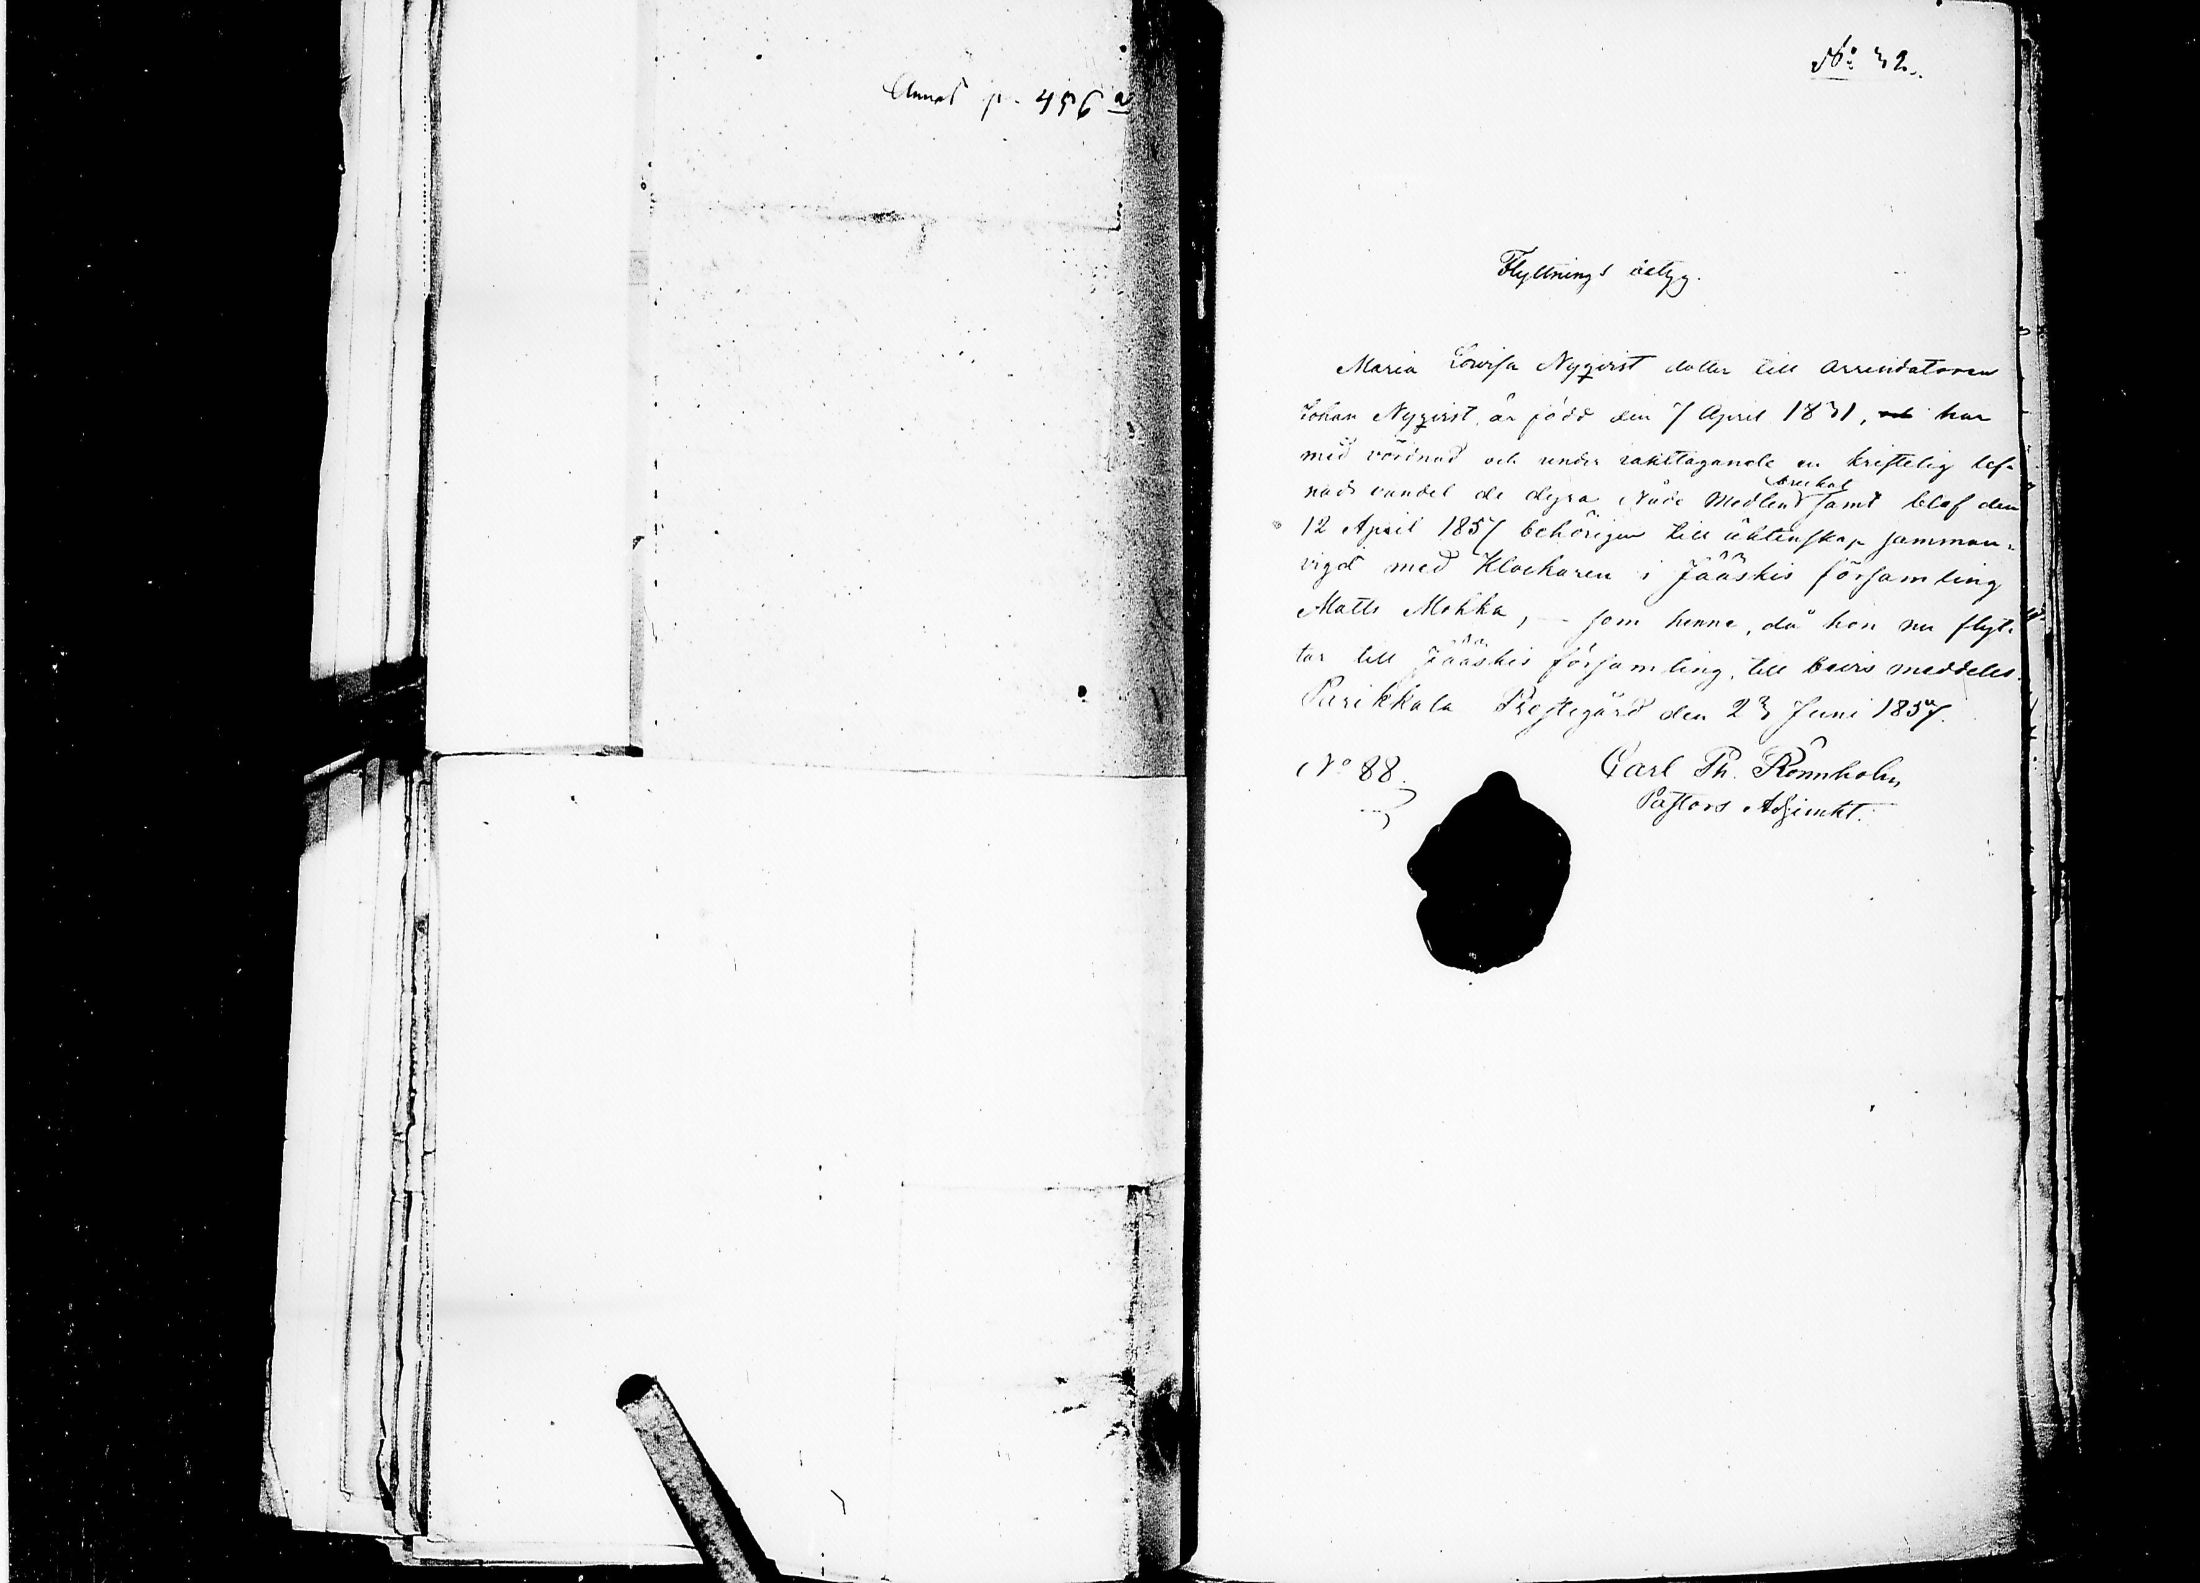 Annot p. 456 a
No 32.
Flyttnings betyg.
Maria Lovisa Nyqvist dotter till Arrendatoren
Johan Nyqvist, är född den 7 April 1831, och har
med vördnad och under iakttagande en kristelig lef-
nads vandel de dyra Nåde Medlen brukat samt blef den
12 April 1857 behörigen till äktenskap samman-
vigd med Klockaren i Jääskis församling
Matts Mohka, – som henne, då hon nu flyt-
tar till Jääskis församling, till bevis meddeles.
Parikkala Prestegård den 23 Juni 1857.
No 88.
Carl Th. Rönnholm,
Pastors Adjunkt.